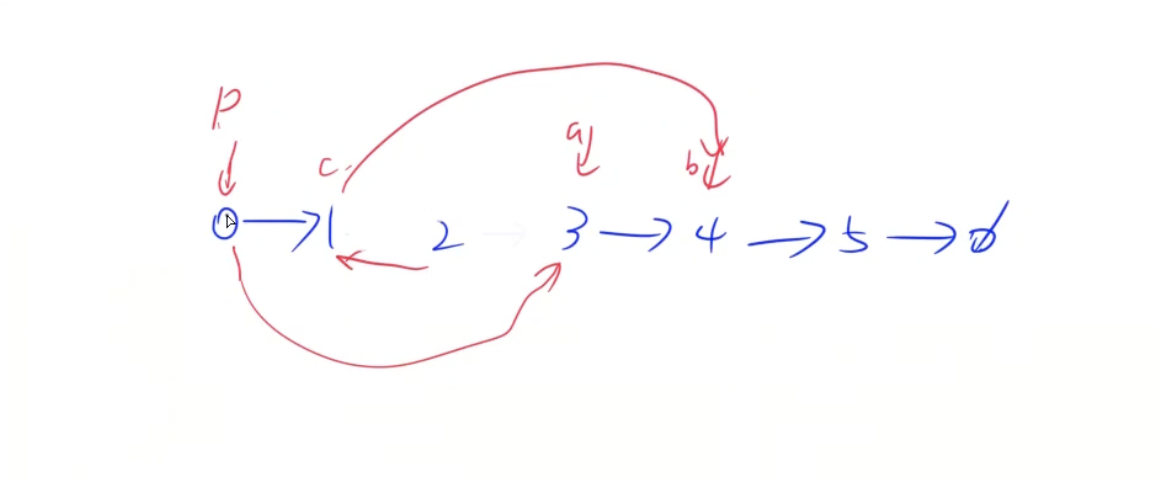 p
c a b
0 → 1 ← 2 3 → 4 → 5 → ∅